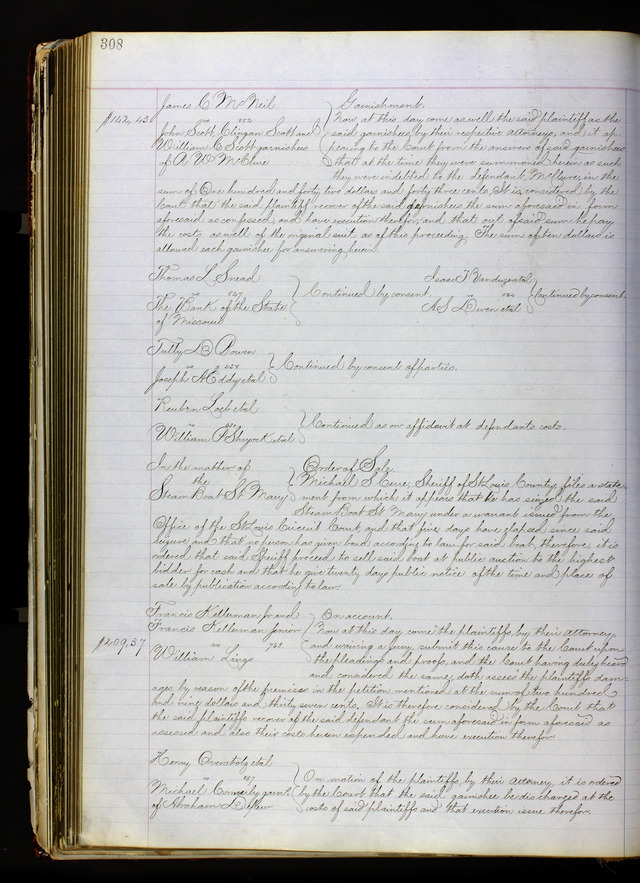 308
James C McNeil } Garnishment.
$142,43 vs 552 Now at this day come as well the said plaintiff as the
John Scott, Clingan Scott and said garnishees, by their respective attorneys, and it ap-
William C Scott garnishees pearing to the Court from the answers of said garnishees
of A Wm McClure that at the time they were summoned herein as such
they were indebted to the defendant, McClure, in the
sum of One hundred and forty two dollars and forty three cents, It is considered by the
Court that the said plaintiff recover of the said garnishees the sum aforesaid in form
aforesaid as confessed, and have execution therefor, and that out of said sum he pay
the costs as well of the original suit as of this proceeding, The sum of ten dollars is
allowed each garnishee for answering herein.
Thomas L Snead
vs 547 } Continued by consent.
The Bank of the State
of Missouri
Isaac T
vs 584 } Continued by consent
A S etal
Tully D Bowen
vs } Continued by consent of parties.
Joseph A Eddy etal
Reuben Loeb etal
vs } Continued as on affidavit at defendants costs.
William P Shryock etal
In the matter of } Order of Sale.
the Michael S Cerre, Sheriff of St Louis County, files a state-
Steam Boat St Mary ment from which it appears that he has seized the said
Steam Boat St Mary under a warrant issued from the
Office of the St Louis Circuit Court and that five days have elapsed since said
seizure and that no person has given bond according to law for said boat, therefore, it is
ordered that said Sheriff proceed to sell said boat at public auction to the highest
bidder for cash and that he give twenty days public notice of the time and place of
sale by publication according to law.
Francis Kelleman Jr and } On account.
Francis Kelleman Senior Now at this day, come the plaintiffs, by their Attorney,
$209,37 vs and waiving a jury, submit this cause to the Court upon
William Lingo the pleadings and proofs, and the Court having duly heard
and considered the same, doth assess the plaintiffs dam-
ages, by reason of the premises in the petition mentioned at the sum of two hundred
and nine dollars and thirty seven cents. It is therefore considered by the Court that
the said plaintiffs recover of the said defendant the sum aforesaid in form aforesaid as
assessed and also their costs herein expended and have execution therefor.
Henry etal
vs } On motion of the plaintiffs, by their Attorney, it is ordered
Michael garn. by the Court that the said garnishee be discharged at the
of Abraham costs of said plaintiffs and that execution issue therefor.